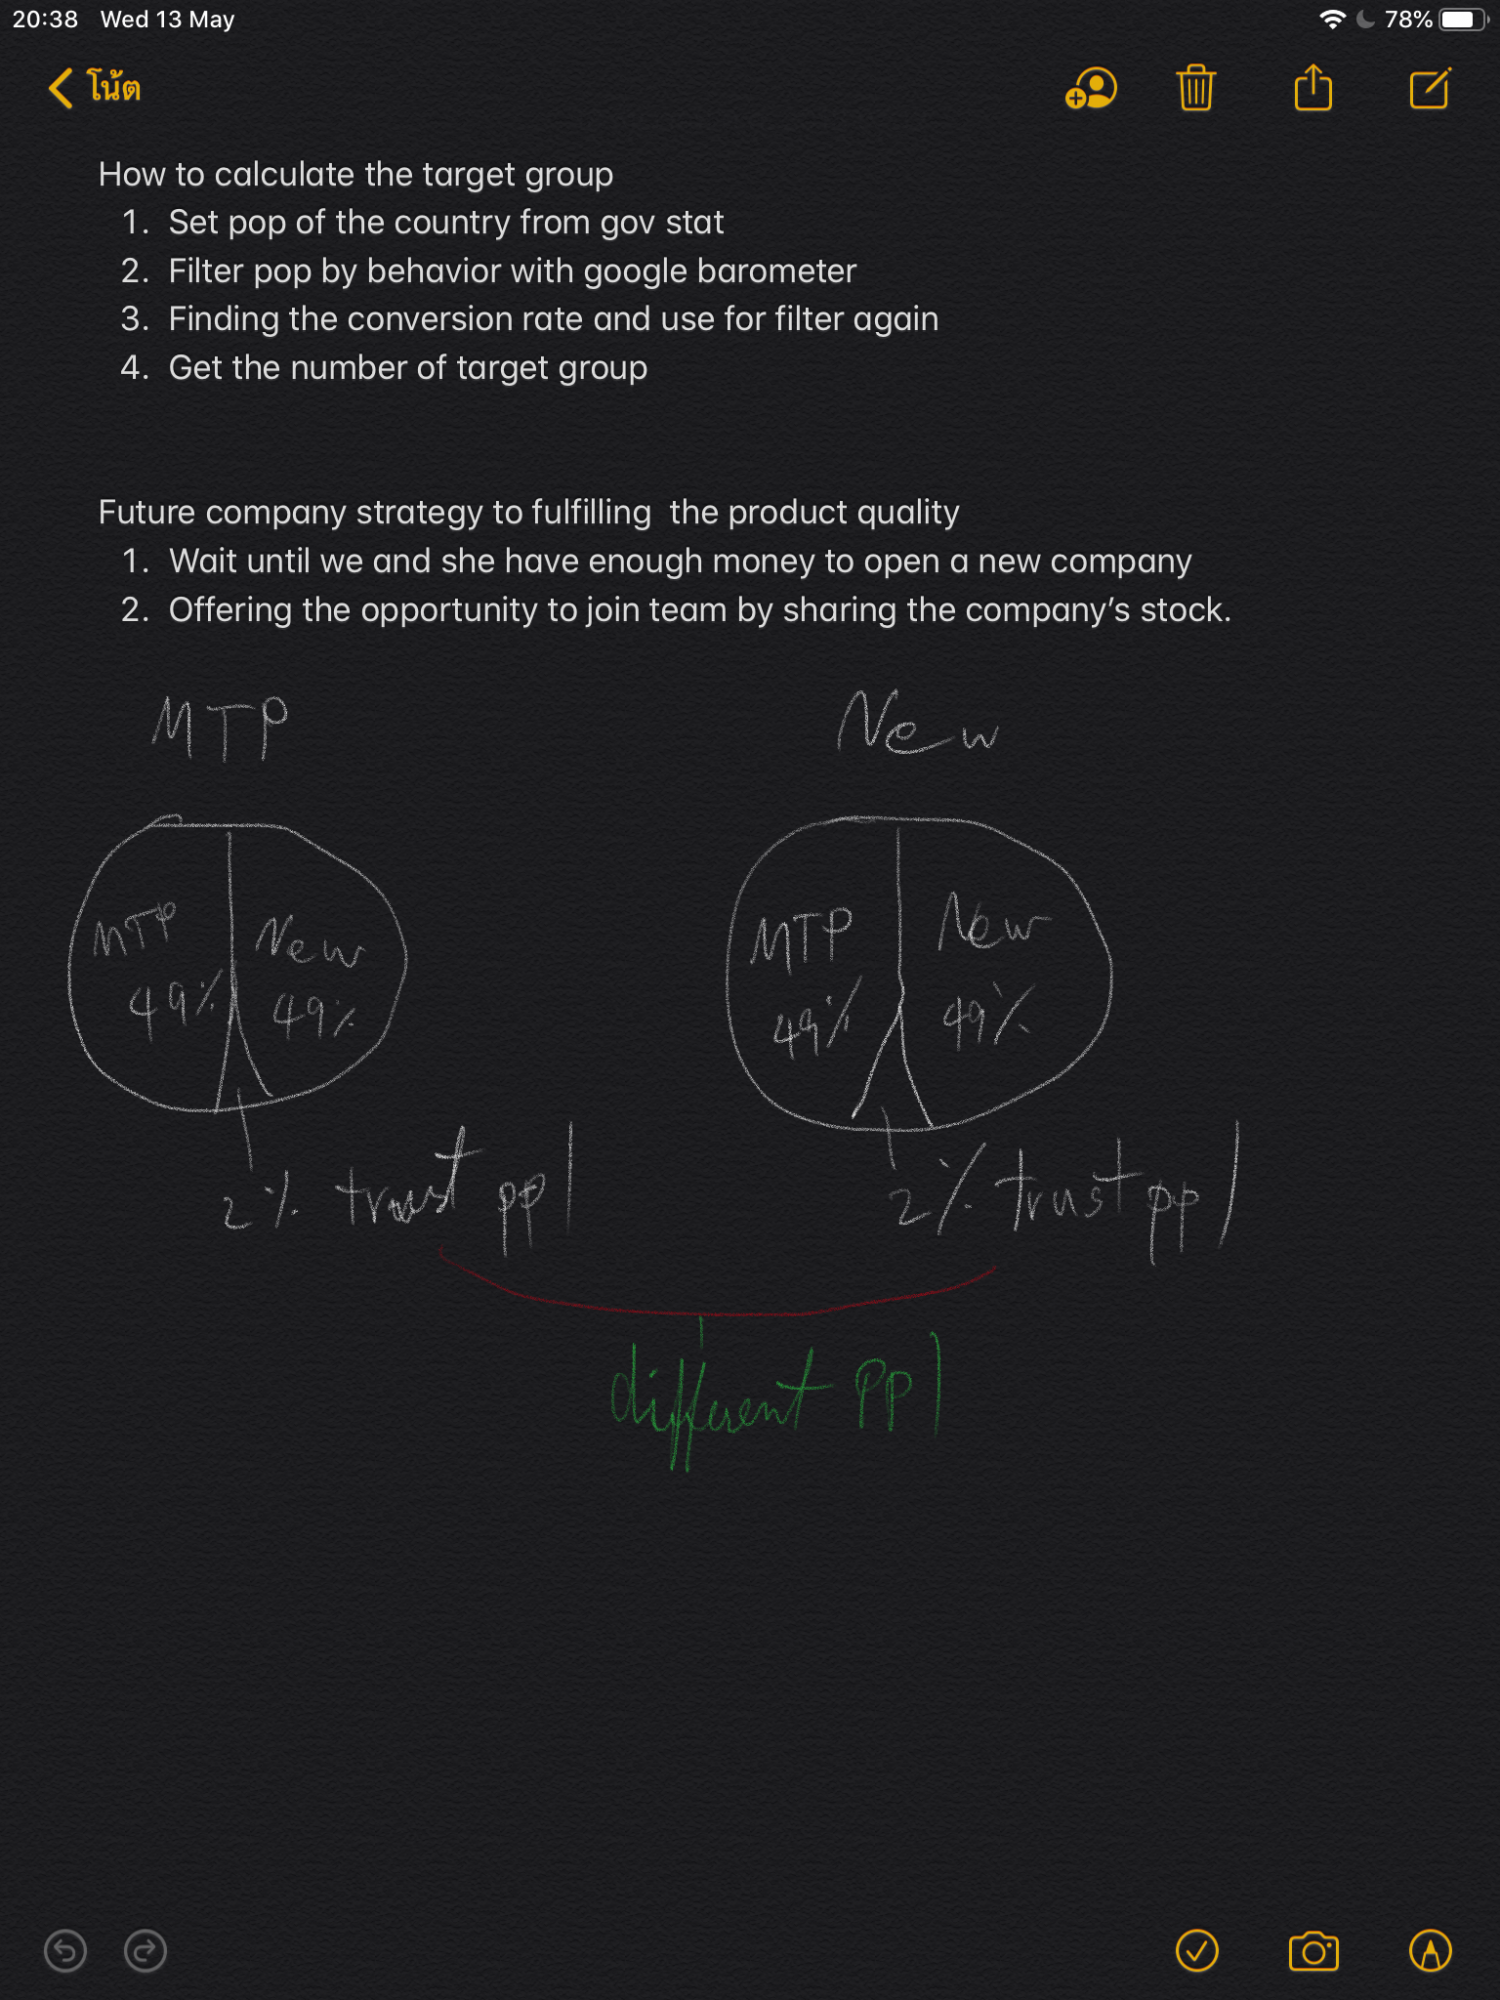 20:38 Wed 13 May 78%
โน้ต
How to calculate the target group
1. Set pop of the country from gov stat
2. Filter pop by behavior with google barometer
3. Finding the conversion rate and use for filter again
4. Get the number of target group
Future company strategy to fulfilling  the product quality
1. Wait until we and she have enough money to open a new company
2. Offering the opportunity to join team by sharing the company’s stock.
MTP
New
MTP
49%
New
49%
MTP
49%
New
49%
2% trust ppl
2% trust ppl
different ppl